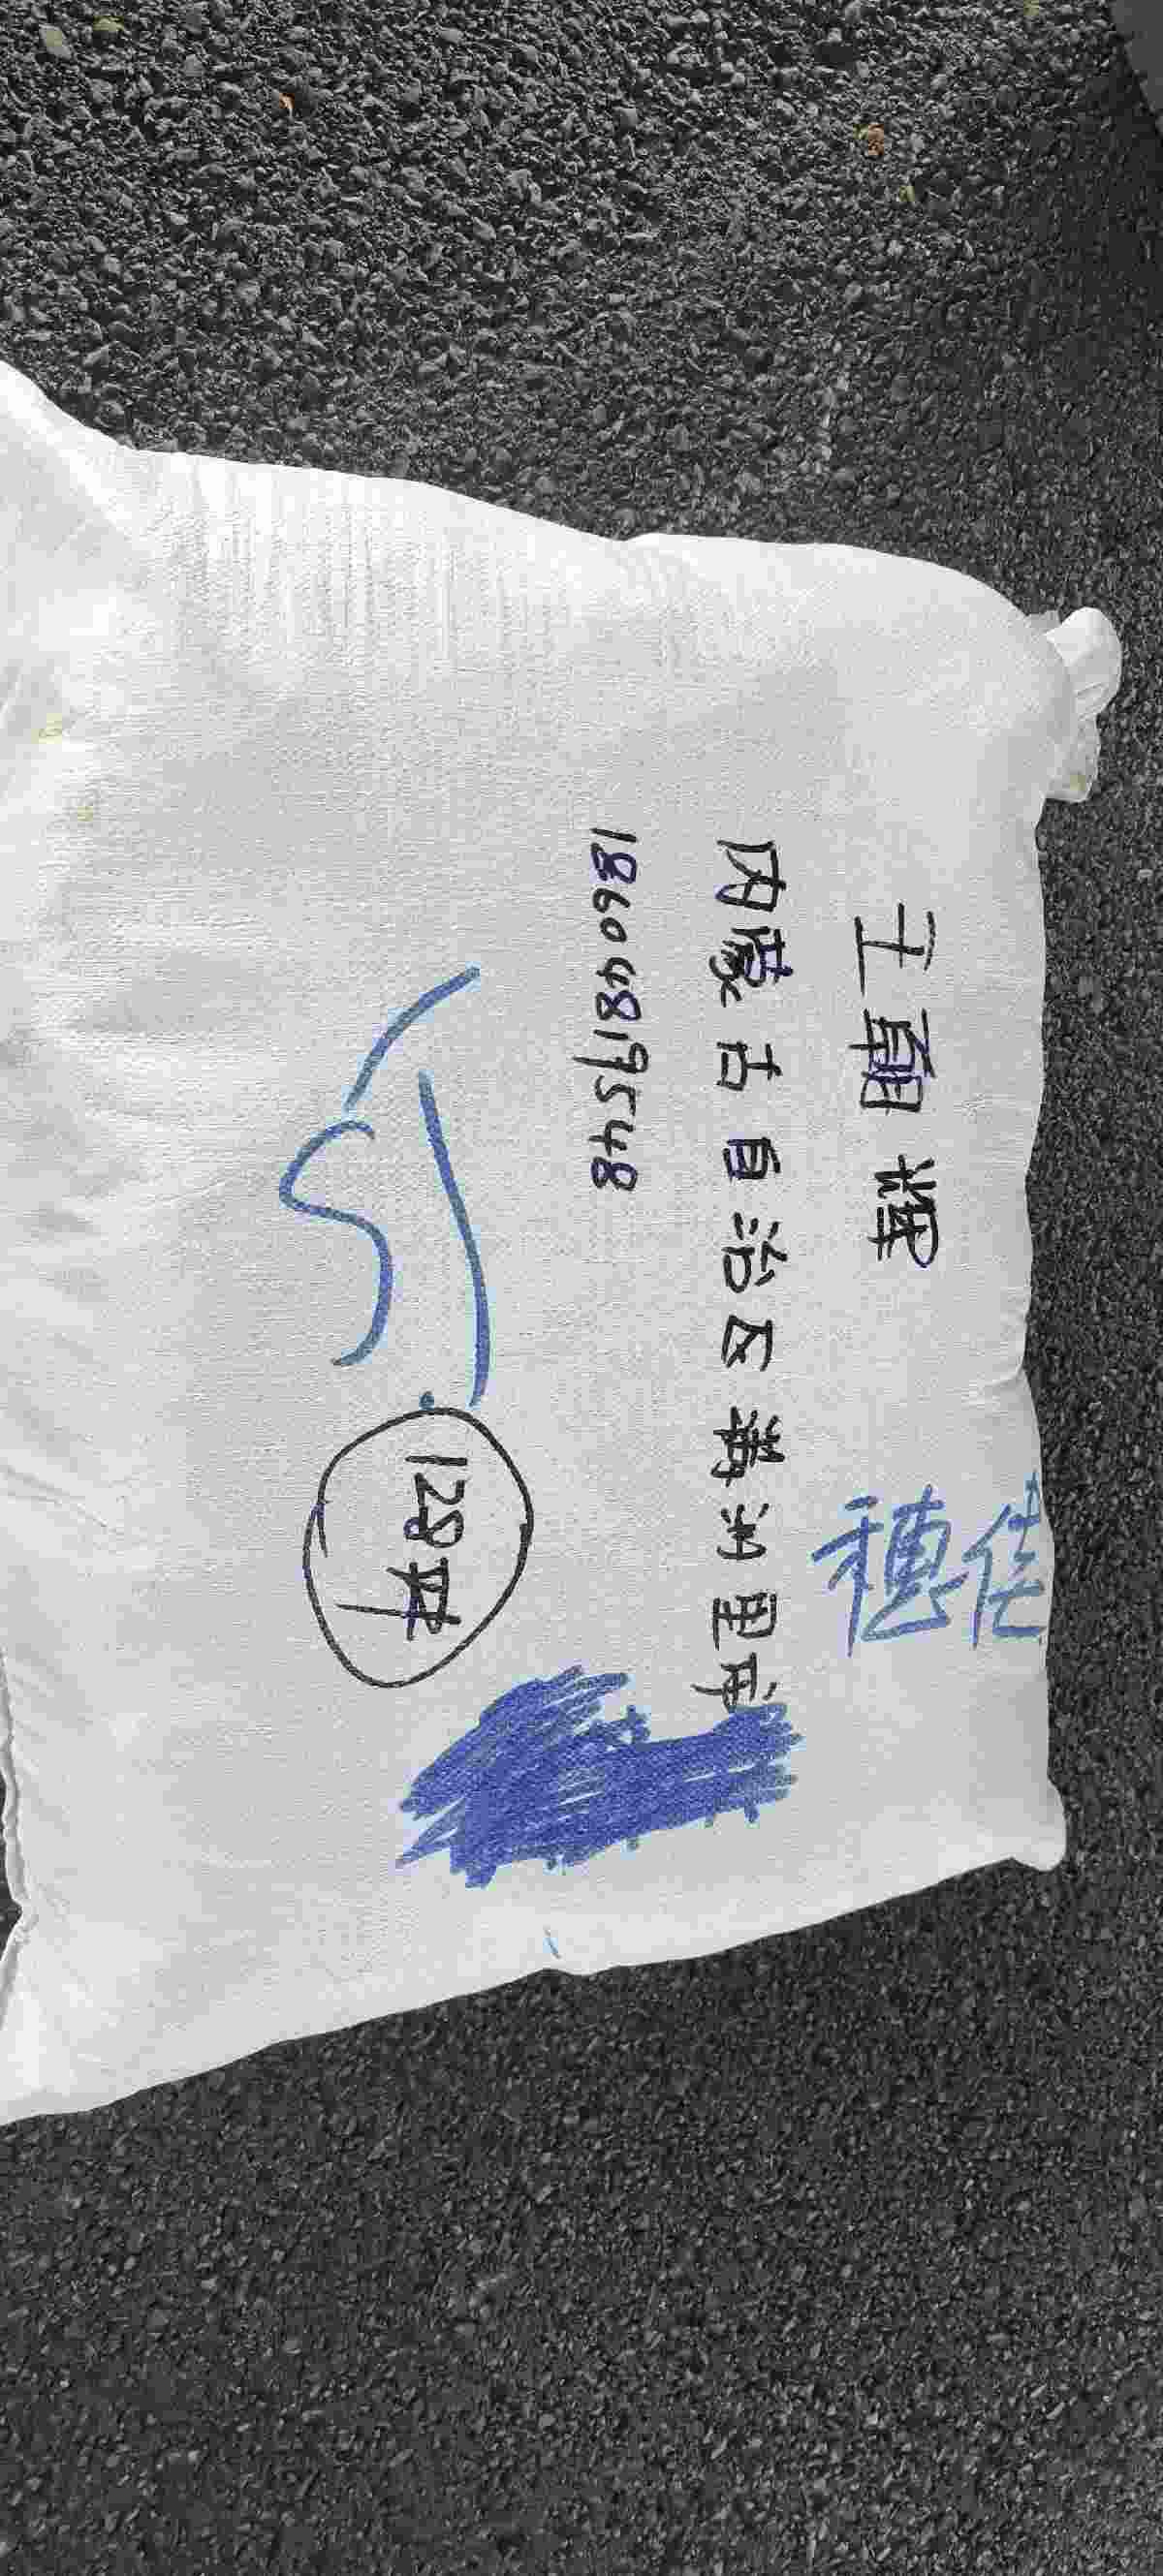 穗佳
王朝辉
内蒙古自治区满洲里市
18604819548
15
128串